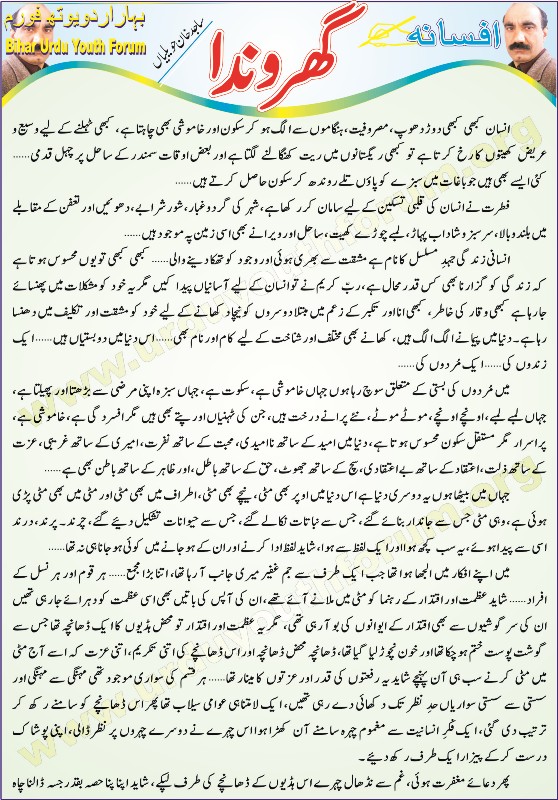 بہار اردو یوتھ فورم
Bihar Urdu Youth Forum
افسانہ
گھروندا
انسان کبھی کبھی دوڑ دھوپ، مصروفیت، ہنگاموں سے الگ ہو کر سکون اور خاموشی بھی چاہتا ہے، کبھی ٹہلنے کے لیے وسیع و
عریض کھیتوں کا رخ کرتا ہے تو کبھی ریگستانوں میں ریت کھنگالنے لگتا ہے اور بعض اوقات سمندر کے ساحل پر چہل قدمی......
کئی ایسے بھی ہیں جو باغات میں سبزے کو پاؤں تلے روندھ کر سکون حاصل کرتے ہیں......
فطرت نے انسان کی قلبی تسکین کے لیے سامان کر رکھا ہے، شہر کی گرد و غبار، شور شرابے، دھوئیں اور تعفن کے مقابلے
میں بلند و بالا، سرسبز و شاداب پہاڑ، لمبے چوڑے کھیت، ساحل اور ویرانے بھی اسی زمین پہ موجود ہیں......
انسانی زندگی جہدِ مسلسل کا نام ہے مشقت سے بھری ہوئی اور وجود کو تھکا دینے والی...... کبھی کبھی تو یوں محسوس ہوتا ہے
کہ زندگی کو گزارنا بھی کس قدر محال ہے، ربّ کریم نے تو انسان کے لیے آسانیاں پیدا کیں مگر یہ خود کو مشکلات میں پھنسائے
جا رہا ہے کبھی وقار کی خاطر، کبھی انا اور تکبر کے زعم میں مبتلا دوسروں کو نیچا دکھانے کے لیے خود کو مشقت اور تکلیف میں دھنسا
رہا ہے۔ دنیا میں پیمانے الگ الگ ہیں، کھانے بھی مختلف اور شناخت کے لیے کام اور نام بھی...... اس دنیا میں دو بستیاں ہیں...... ایک
زندوں کی...... ایک مُردوں کی......
میں مُردوں کی بستی کے متعلق سوچ رہا ہوں جہاں خاموشی ہے، سکوت ہے، جہاں سبزہ اپنی مرضی سے بڑھتا اور پھیلتا ہے،
جہاں لمبے لمبے، اونچے اونچے، موٹے موٹے، نئے پرانے درخت ہیں، جن کی ٹہنیاں اور پتے بھی ہیں مگر افسردگی ہے، خاموشی ہے،
پر اسرار مگر مستقل سکون محسوس ہوتا ہے، دنیا میں امید کے ساتھ ناامیدی، محبت کے ساتھ نفرت، امیری کے ساتھ غریبی، عزت
کے ساتھ ذلت، اعتقاد کے ساتھ بے اعتقادی، سچ کے ساتھ جھوٹ، حق کے ساتھ باطل، اور ظاہر کے ساتھ باطن بھی ہے......
جہاں میں بیٹھا ہوں یہ دوسری دنیا ہے اس دنیا میں اوپر بھی مٹی، نیچے بھی مٹی، اطراف میں بھی مٹی اور مٹی میں بھی مٹی پڑی
ہوئی ہے، وہی مٹی جس سے جاندار بنائے گئے، جس سے نباتات نکالے گئے، جس سے حیوانات تشکیل دئیے گئے، چرند۔ پرند، درند
اسی سے پیدا ہوئے، یہ سب کچھ ہوا اور ایک لفظ سے ہوا، شاید لفظ ادا کرنے اور ان کے ہو جانے میں کوئی ہو جانا ہی نہ تھا......
میں اپنے افکار میں الجھا ہوا تھا جب ایک طرف سے جم غفیر میری جانب آ رہا تھا، اتنا بڑا مجمع...... ہر قوم اور ہر نسل کے
افراد...... شاید عظمت اور اقتدار کے رہنما کو مٹی میں ملانے آئے تھے، ان کی آپس کی باتیں بھی اسی عظمت کو دہرائے جا رہی تھیں
ان کی سرگوشیوں سے بھی اقتدار کے ایوانوں کی بو آ رہی تھی، مگر یہ عظمت اور اقتدار تو محض ہڈیوں کا ایک ڈھانچہ تھا جس سے
گوشت پوست ختم ہو چکا تھا اور خون نچوڑ لیا گیا تھا، ڈھانچہ محض ڈھانچہ اور اس ڈھانچے کی اتنی تکریم، اتنی عزت کہ اسے آج مٹی
میں مٹی کرنے سب ہی آن پہنچے شاید یہ رفعتوں کی قدر اور عزتوں کا مینار تھا...... ہر قسم کی سواری موجود تھی مہنگی سے مہنگی اور
سستی سے سستی سواریاں حدِ نظر تک دکھائی دے رہی تھیں، ایک لامتناہی عوامی سیلاب تھا پھر اس ڈھانچے کو سامنے رکھ کر
ترتیب دی گئی، ایک فکرِ انسانیت سے مغموم چہرہ سامنے آن کھڑا ہوا اس چہرے نے دوسرے چہروں پر نظر ڈالی، اپنی پوشاک
درست کر کے پیزار ایک طرف رکھ دیئے۔
پھر دعائے مغفرت ہوئی، غم سے نڈھال چہرے اس ہڈیوں کے ڈھانچے کی طرف لپکے، شاید اپنا اپنا حصہ بقدر جسد ڈالنا چاہ
www.urduyouthforum.org